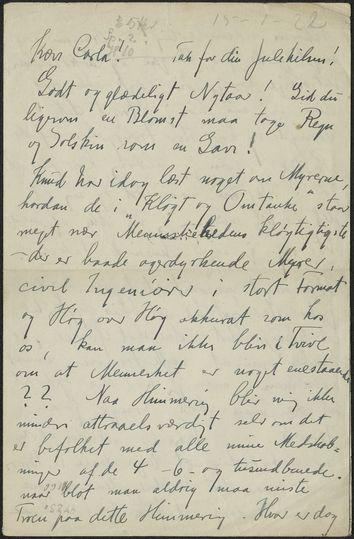 15-1-22
Kære Carla! Tak for din Julehilsen!
Godt og glædeligt Nytaar! Gid du
ligesom en Blomst maa tage Regn
og Solskin som en Gave!
Knud har idag læst noget om Myrerne,
hordan de i "Kløgt og Omtanke" staar
meget nær Menneskehedens kløgtigtigste
- der er baade agerdyrkende Myrer,
civil Ingeniører i stort Format
og Høj over Høj akkurat som hos
os, kan man ikke bliv i Tvivl
om at Mennesket er noget enestaaende
?? Naa Himmerig blir mig ikke
mindre attraaelsværdigt selv om det
er befolket med alle mine Medskab-
ninger af de 4 -6- og tusindbenede.
naar blot man aldrig maa miste
Troen paa dette Himmerig. Hvor er dog